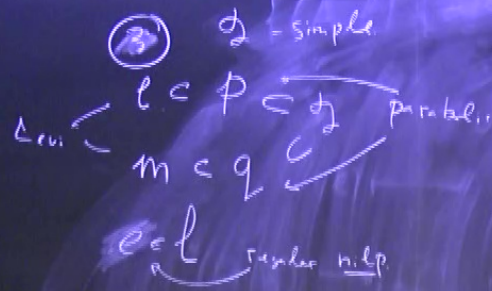 3 g = simple
l ⊂ p ⊂ g parabolic
Levi
m ⊂ q ⊂
e ∈ l regular nilp.